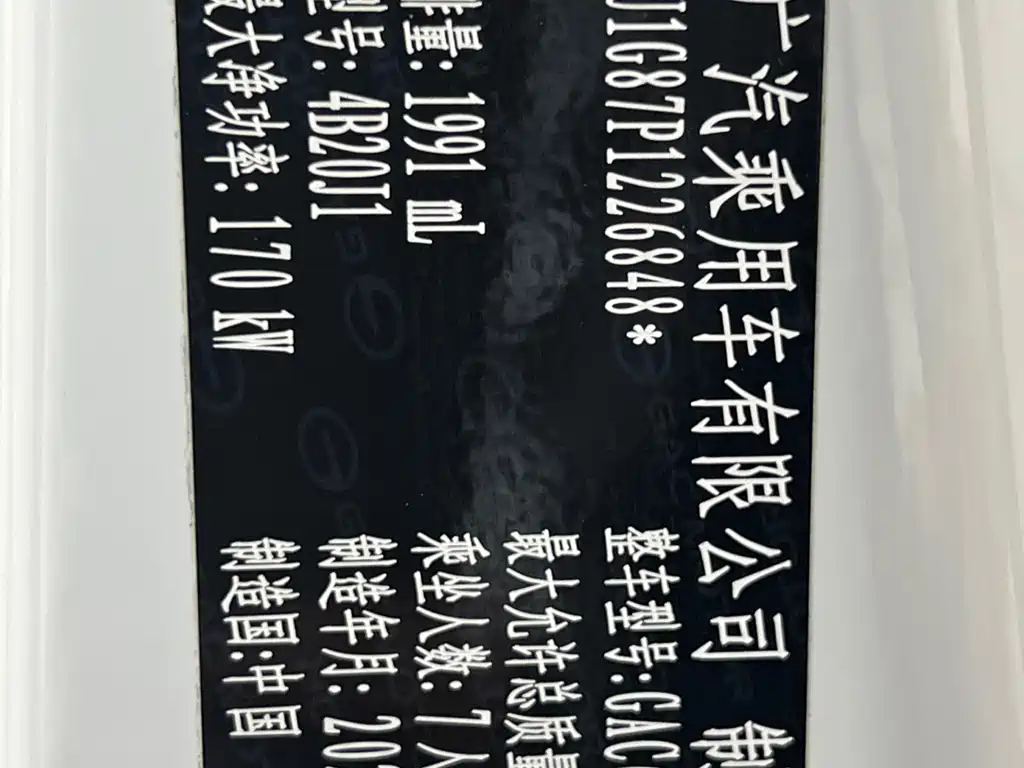 广汽乘用车有限公司 制
J1G87P1226848*
整车型号:GAC
最大允许总质量
排量: 1991 mL
乘坐人数: 7 人
型号: 4B20J1
制造年月: 20
最大净功率: 170 kW
制造国:中国